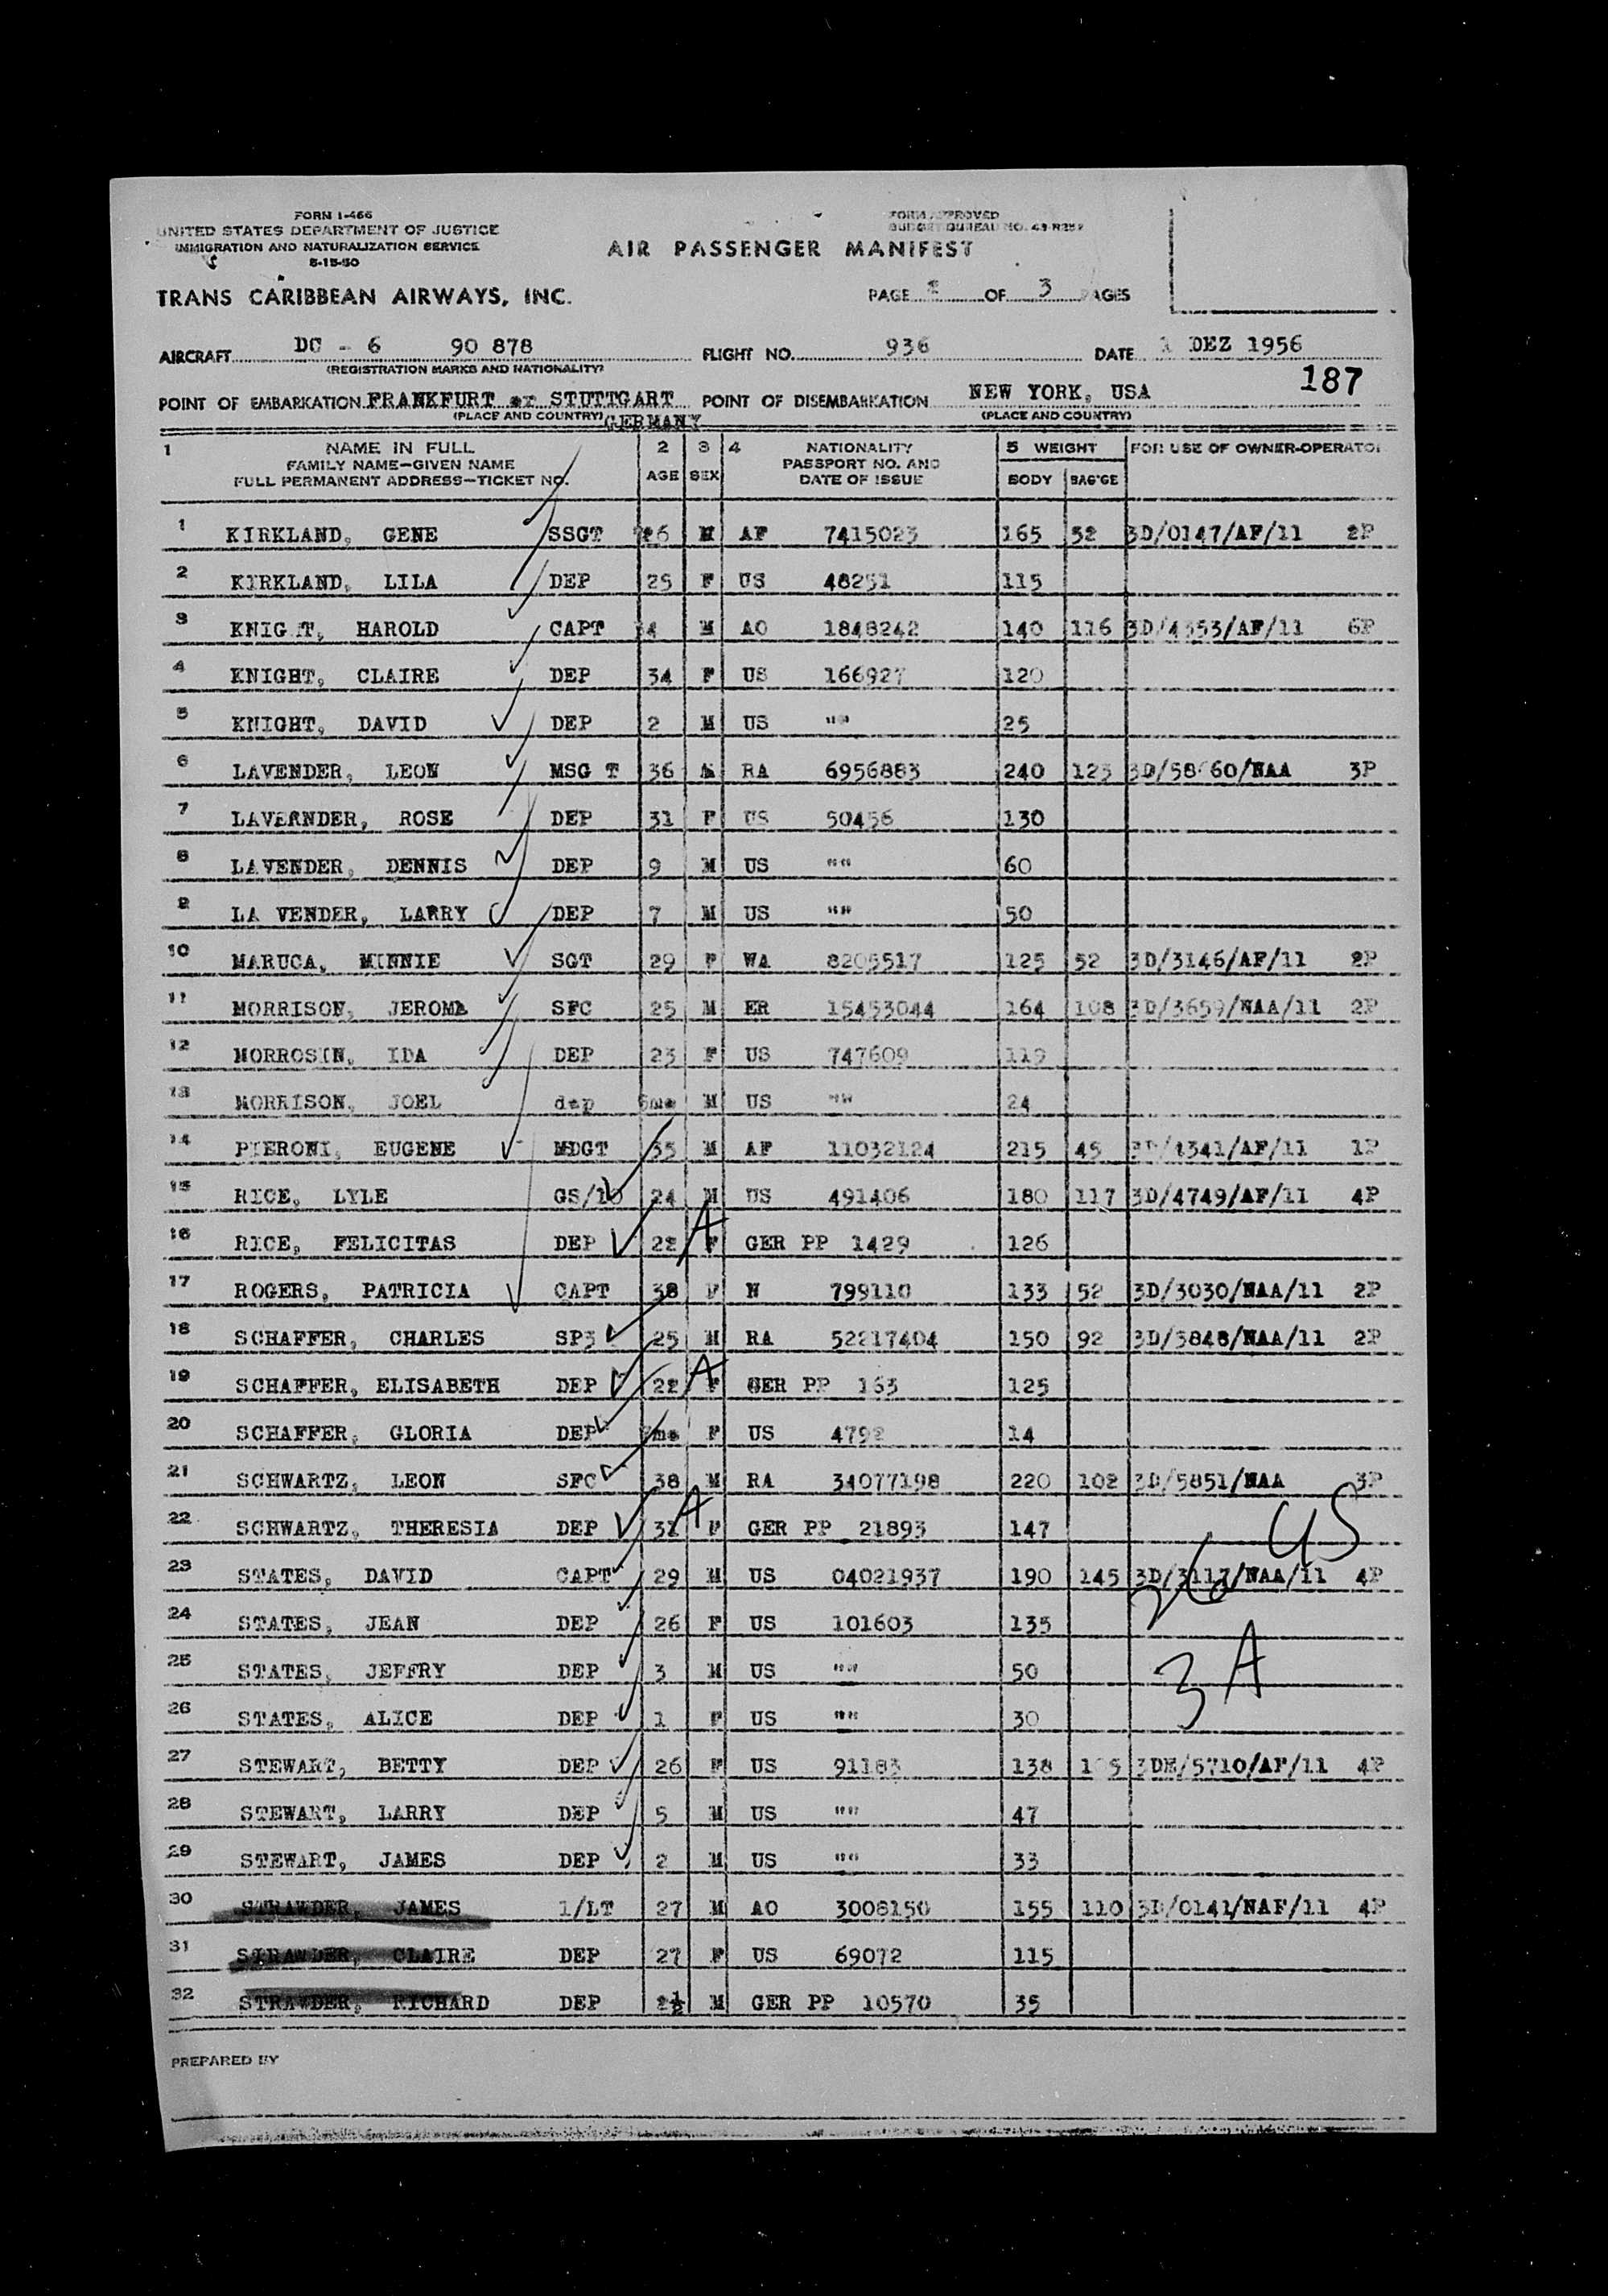 FORM I-466
UNITED STATES DEPARTMENT OF JUSTICE
IMMIGRATION AND NATURALIZATION SERVICE
5-15-50
FORM APPROVED
BUDGET BUREAU NO. 43-R352
AIR PASSENGER MANIFEST
TRANS CARIBBEAN AIRWAYS, INC.
PAGE OF 3 PAGES
AIRCRAFT DC - 6 90 878 FLIGHT NO. 936 DATE 1 DEZ 1956
(REGISTRATION MARKS AND NATIONALITY)
187
POINT OF EMBARKATION FRANKFURT or STUTTGART POINT OF DISEMBARKATION NEW YORK, USA
(PLACE AND COUNTRY) GERMANY (PLACE AND COUNTRY)
1 NAME IN FULL 2 3 4 NATIONALITY 5 WEIGHT FOR USE OF OWNER-OPERATOR
FAMILY NAME—GIVEN NAME AGE SEX PASSPORT NO. AND BODY BAG'GE
FULL PERMANENT ADDRESS—TICKET NO. DATE OF ISSUE
1 KIRKLAND, GENE SSGT 26 M AF 7415023 165 52 3D/0147/AF/11 2P
2 KIRKLAND, LILA DEP 25 F US 48251 115
3 KNIGHT, HAROLD CAPT M AO 1848242 140 116 3D/4353/AF/11 6P
4 KNIGHT, CLAIRE DEP 34 F US 166927 120
5 KNIGHT, DAVID DEP 2 M US "" 25
6 LAVENDER, LEON MSG T 36 M RA 6956883 240 123 3P
7 LAVERNDER, ROSE DEP 31 F US 50456 130
8 LAVENDER, DENNIS DEP 9 M US "" 60
9 LA VENDER, LARRY DEP 7 M US "" 50
10 MARUCA, MINNIE SGT 29 F WA 8205517 125 52 3D/3146/AF/11 2P
11 MORRISON, JEROME SFC 25 M ER 15453044 164 108 3D/3659/NAA/11 2P
12 MORROSIN, IDA DEP 23 F US 747609 119
13 MORRISON, JOEL dep M US "" 24
14 PIERONI, EUGENE MDGT 35 M AF 11032124 215 45 3D/4341/AF/11 1P
15 RICE, LYLE GS/10 24 M US 491406 180 117 3D/4749/AF/11 4P
16 RICE, FELICITAS DEP 22 F A GER PP 1429 126
17 ROGERS, PATRICIA CAPT 38 F N 799110 133 52 3D/3030/NAA/11 2P
18 SCHAFFER, CHARLES SP3 25 M RA 52217404 150 92 3D/3848/NAA/11 2P
19 SCHAFFER, ELISABETH DEP 22 F A GER PP 163 125
20 SCHAFFER, GLORIA DEP F US 4792 14
21 SCHWARTZ, LEON SFC 38 M RA 34077198 220 102 3D/5851/NAA 3P
22 SCHWARTZ, THERESIA DEP 31 F A GER PP 21893 147
26 US
23 STATES, DAVID CAPT 29 M US 04021937 190 145 3D/3117/NAA/11 4P
24 STATES, JEAN DEP 26 F US 101603 135
25 STATES, JEFFRY DEP 3 M US "" 50
3 A
26 STATES, ALICE DEP 1 F US "" 30
27 STEWART, BETTY DEP 26 F US 91183 138 3DE/5710/AF/11 4P
28 STEWART, LARRY DEP 5 M US "" 47
29 STEWART, JAMES DEP 2 M US "" 33
30 STRAWDER, JAMES 1/LT 27 M AO 3008150 155 110 3D/0141/NAF/11 4P
31 STRAWDER, CLAIRE DEP 27 F US 69072 115
32 STRAWDER, RICHARD DEP 2½ M GER PP 10570 35
PREPARED BY